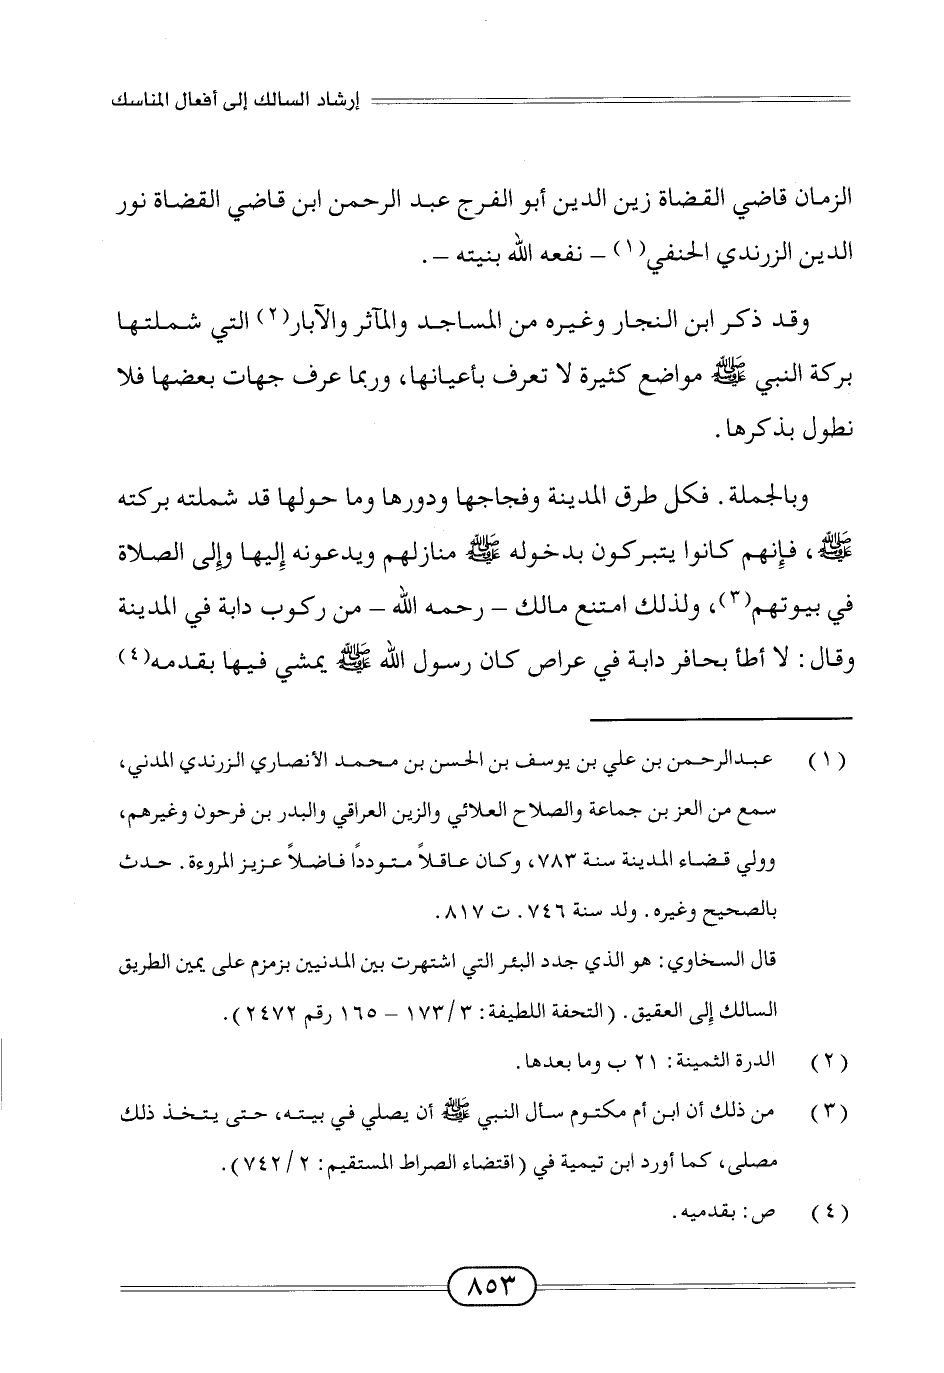 إرشاد السالك إلى أفعال المناسك
الزمان قاضي القضاة زين الدين أبو الفرج عبد الرحمن ابن قاضي القضاة نور
الدين الزرندي الحنفي(١) – نفعه الله بنيته –.
وقد ذكر ابن النجار وغيره من المساجد والمآثر والآبار(٢) التي شملتها
بركة النبي ﷺ مواضع كثيرة لا تعرف بأعيانها، وربما عرف جهات بعضها فلا
نطول بذكرها.
وبالجملة. فكل طرق المدينة وفجاجها ودورها وما حولها قد شملته بركته
ﷺ، فإنهم كانوا يتبركون بدخوله ﷺ منازلهم ويدعونه إليها وإلى الصلاة
في بيوتهم(٣)، ولذلك امتنع مالك – رحمه الله – من ركوب دابة في المدينة
وقال: لا أطأ بحافر دابة في عراص كان رسول الله ﷺ يمشي فيها بقدمه(٤)
(١) عبدالرحمن بن علي بن يوسف بن الحسن بن محمد الأنصاري الزرندي المدني،
سمع من العز بن جماعة والصلاح العلائي والزين العراقي والبدر بن فرحون وغيرهم،
وولي قضاء المدينة سنة ٧٨٣، وكان عاقلاً متودداً فاضلاً عزيز المروءة. حدث
بالصحيح وغيره. ولد سنة ٧٤٦. ت ٨١٧.
قال السخاوي: هو الذي جدد البئر التي اشتهرت بين المدنيين بزمزم على يمين الطريق
السالك إلى العقيق. (التحفة اللطيفة: ١٧٣/٣ – ١٦٥ رقم ٢٤٧٢).
(٢) الدرة الثمينة: ٢١ ب وما بعدها.
(٣) من ذلك أن ابن أم مكتوم سأل النبي ﷺ أن يصلي في بيته، حتى يتخذ ذلك
مصلى، كما أورد ابن تيمية في (اقتضاء الصراط المستقيم: ٧٤٢/٢).
(٤) ص: بقدميه.
٨٥٣